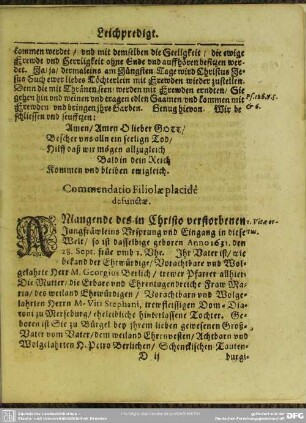 Leichpredigt.
kommen werdet / und mit demselben die Seeligkeit / die ewige
Frewde und Herrligkeit ohne Ende und auffhören besitzen wer-
det. Ja / ja / dermaleins am Jüngsten Tage wird Christus Je-
sus Euch ewer liebes Töchterlein mit Frewden wieder zustellen.
Denn die mit Thränen seen / werden mit Frewden erndten / Sie
gehen hin und weinen und tragen edlen Saamen und kommen mit
Frewden und bringen ihre Garben. Genug hievon. Wir be-
schliessen und seufftzen:
Ps. 126. v. 5.
& 6.
Amen / Amen O lieber GOtt /
Bescher uns alln ein seelign Tod /
Hilff daß wir mögen allzugleich
Bald in dein Reich
Kommen und bleiben ewigleich.
Commendatio Filiolæ placidè
defunctæ.
ANlangende des in Christo verstorbenen
Jungfräwleins Ursprung und Eingang in diese
Welt / so ist dasselbige geboren Anno 1651. den
28. Sept. früe umb 1. Uhr. Ihr Vater ist / wie
bekand der Ehrwürdige / Vorachtbare und Wol-
gelahrte Herr M. Georgius Berlich / trewer Pfarrer allhier:
Die Mutter / die Erbare und Ehrentugendreiche Fraw Ma-
ria / des weiland Ehrwürdigen / Vorachtbarn und Wolge-
lahrten Herrn M. Viti Stephani, treufleissigen Dom-Dia-
coni zu Merseburg / eheleibliche hinderlassene Tochter. Ge-
boren ist Sie zu Bürgel bey ihrem lieben gewesenen Groß-
Vater vom Vater / dem weiland Ehrenvesten / Achtbarn und
Wolgelahrten H. Petro Berlichen / Schenckischen Tauten-
D ij
burgi-